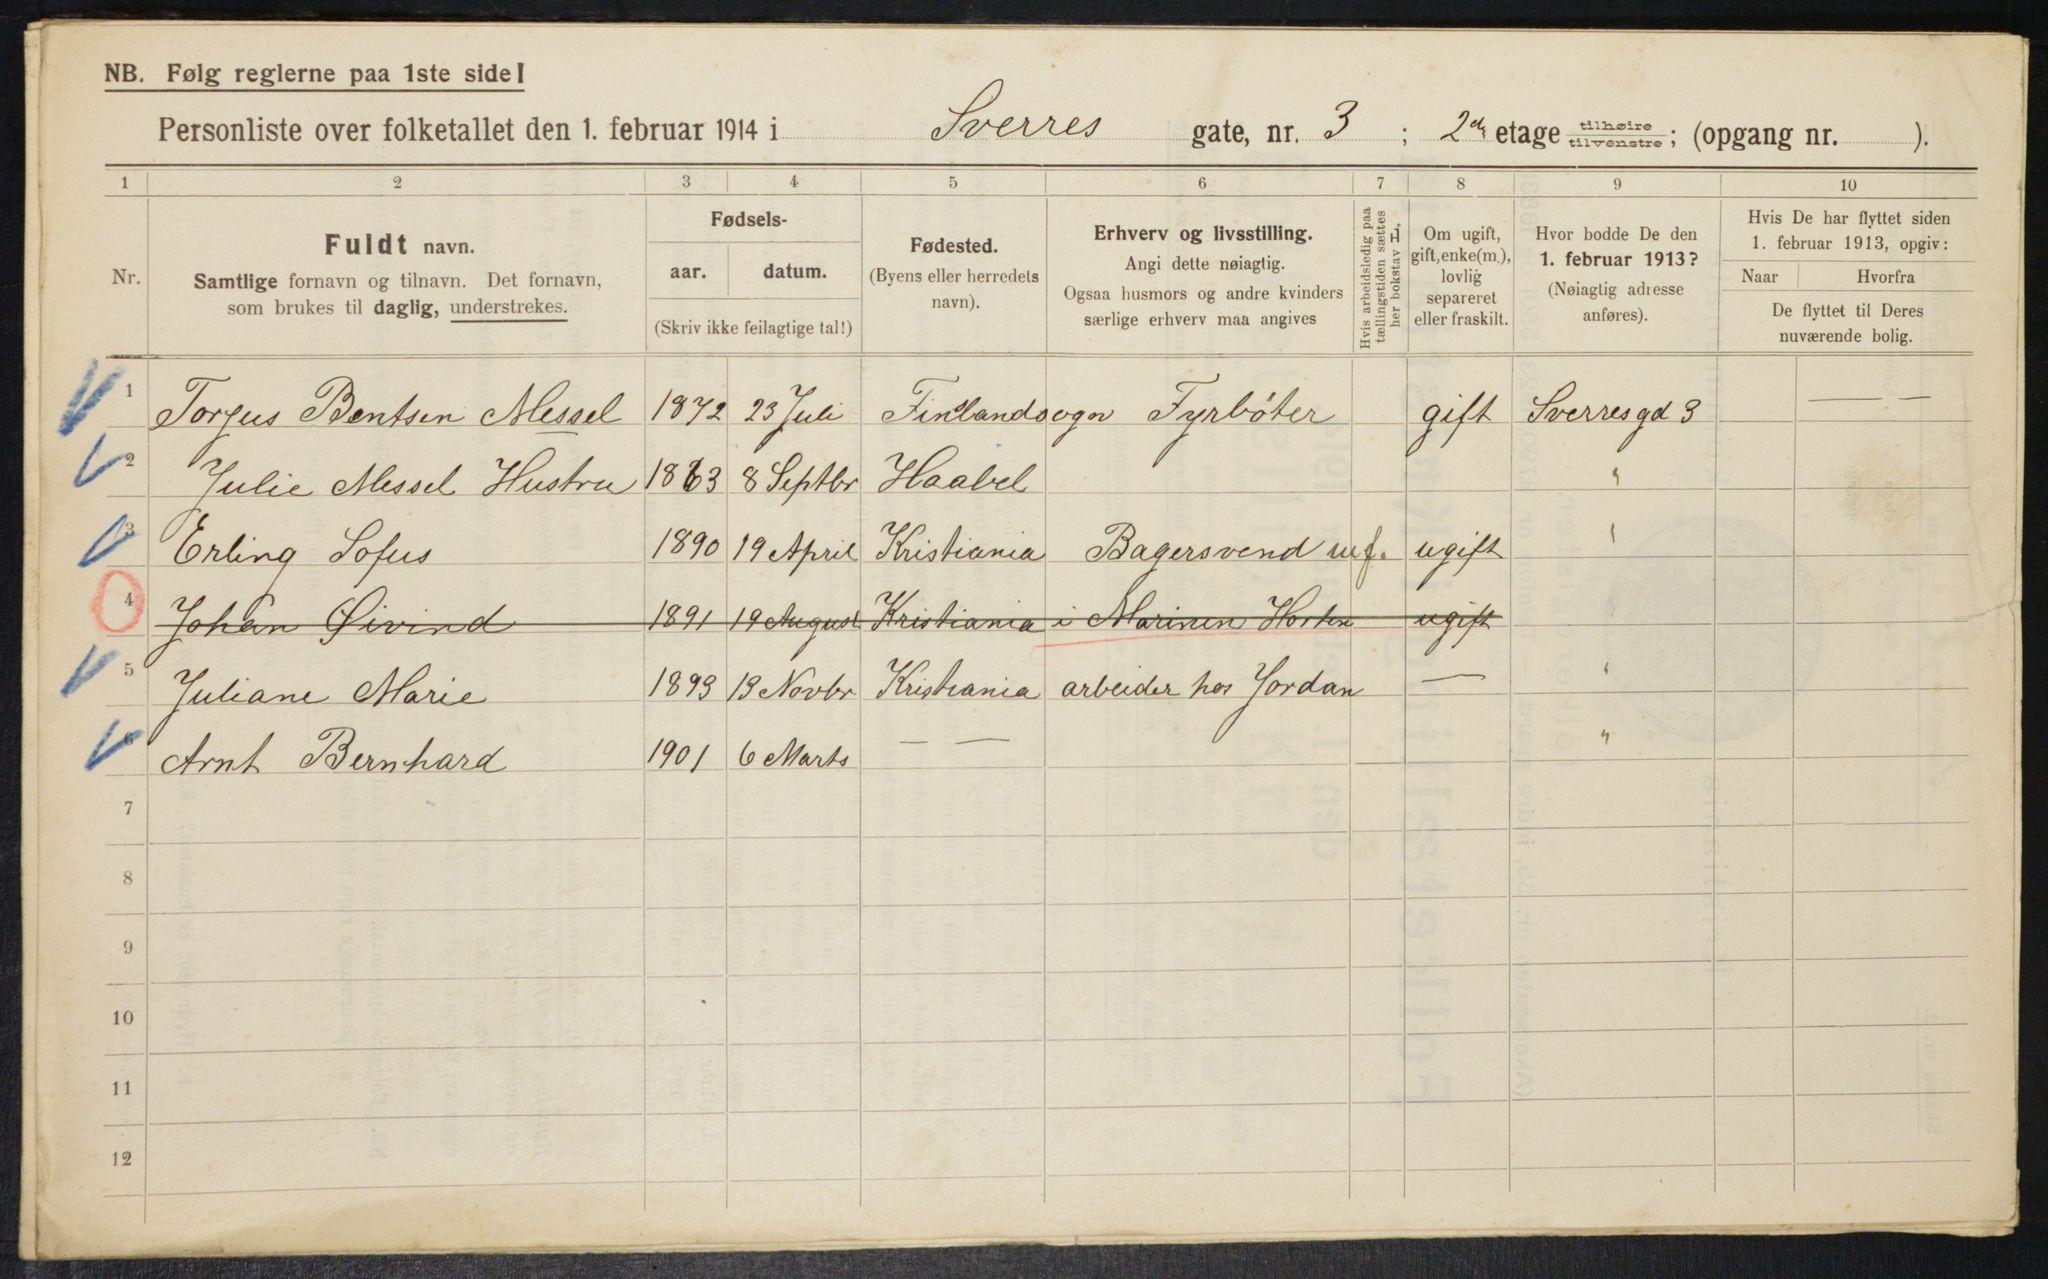 NB. Følg reglerne paa 1ste side!
Personliste over folketallet den 1. februar 1914 i Sverres gate, nr. 3 ; 2den etage tilhøire tilvenstre ; (opgang nr. ).
1 2 3 4 5 6 7 8 9 10
Nr.
Fuldt navn.
Samtlige fornavn og tilnavn. Det fornavn,
som brukes til daglig, understrekes.
Fødsels-
aar. datum.
(Skriv ikke feilagtige tal!)
Fødested.
(Byens eller herredets
navn).
Erhverv og livsstilling.
Angi dette nøiagtig.
Ogsaa husmors og andre kvinders
særlige erhverv maa angives
Hvis arbeidsledig paa
tællingstiden sættes
her bokstav L.
Om ugift,
gift, enke(m.),
lovlig
separeret
eller fraskilt.
Hvor bodde De den
1. februar 1913?
(Nøiagtig adresse
anføres).
Hvis De har flyttet siden
1. februar 1913, opgiv:
Naar Hvorfra
De flyttet til Deres
nuværende bolig.
1 Torjus Bentsen Messel 1872 23 Juli Finlandsogn Fyrbøter gift Sverresgd 3 — —
2 Julie Messel Hustru 1863 8 Septbr Haabel "
3 Erling Sofus 1890 19 April Kristiania Bagersvend ugift "
4 Johan Øivind 1891 19 August Kristiania i Marinen Horten ugift
5 Juliane Marie 1893 13 Novbr Kristiania arbeider hos Jordan — "
6 Arnt Bernhard 1901 6 Marts — — "
7
8
9
10
11
12